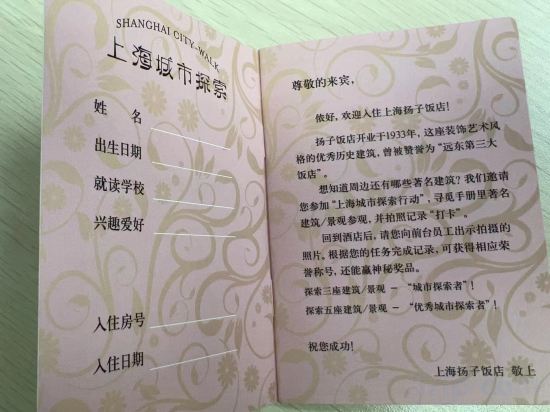 SHANGHAI CITY-WALK
上海城市探索
姓 名
出生日期
就读学校
兴趣爱好
入住房号
入住日期
尊敬的来宾，
侬好，欢迎入住上海扬子饭店！
扬子饭店开业于1933年，这座装饰艺术风
格的优秀历史建筑，曾被赞誉为“远东第三大
饭店”。
想知道周边还有哪些著名建筑？我们邀请
您参加“上海城市探索行动”，寻觅手册里著名
建筑/景观参观，并拍照记录“打卡”。
回到酒店后，请您向前台员工出示拍摄的
照片。根据您的任务完成记录，可获得相应荣
誉称号，还能赢神秘奖品。
探索三座建筑/景观 — “城市探索者”！
探索五座建筑/景观 — “优秀城市探索者”！
祝您成功！
上海扬子饭店 敬上